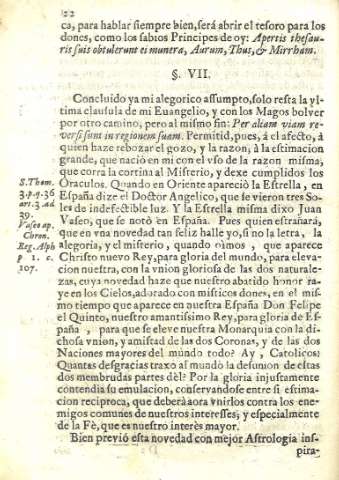 22
ca, para hablar siempre bien, será abrir el tesoro para los
dones, como los sabios Principes de oy: Apertis thesau-
ris suis obtulerunt ei munera, Aurum, Thus, & Mirrham.
§. VII.
Concluido ya mi alegorico assumpto, solo resta la vl-
tima clausula de mi Euangelio, y con los Magos bolver
por otro camino, pero al mismo fin: Per aliam viam re-
versi sunt in regionem suam. Permitid, pues, á el afecto, á
quien haze rebozar el gozo, y la razon, à la estimacion
grande, que naciò en mi con el vso de la razon misma,
que corra la cortina al Misterio, y dexe cumplidos los
Oraculos. Quando en Oriente apareciò la Estrella, en
España dize el Doctor Angelico, que se vieron tres So-
les de indefectible luz. Y la Estrella misma dixo Juan
Vaseo, que se notò en España. Pues quien estrañará,
que en vna novedad tan feliz halle yo, si no la letra, la
alegoria, y el misterio, quando oìmos, que aparece
Christo nuevo Rey, para gloria del mundo, para eleva-
cion nuestra, con la vnion gloriosa de las dos naturale-
zas, cuya novedad haze que nuestro abatido honor ra-
ye en los Cielos, adorado con misticos dones, en el mis-
mo tiempo que aparece en nuestra España Don Felipe
el Quinto, nuestro amantissimo Rey, para gloria de Es-
paña, para que se eleve nuestra Monarquia con la di-
chosa vnion, y amistad de las dos Coronas, y de las dos
Naciones mayores del mundo todo? Ay, Catolicos!
Quantas desgracias traxo al mundo la desunion de estas
dos membrudas partes dèl? Por la gloria injustamente
contendia su emulacion, conservandose entre si estima-
cion reciproca, que deberà aora vnirlos contra los ene-
migos comunes de nuestros interesses; y especialmente
de la Fè, que es nuestro interès mayor.
Bien previó esta novedad con mejor Astrologia ins-
pira-
S. Thom.
3. p. q. 36
art. 3. ad
39.
Vaseo ap.
Chron.
Reg. Alph
p 1. c.
107.